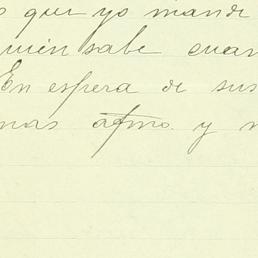 o que yo mande
uién sabe cuan
En espera de sus
mas afmo. y